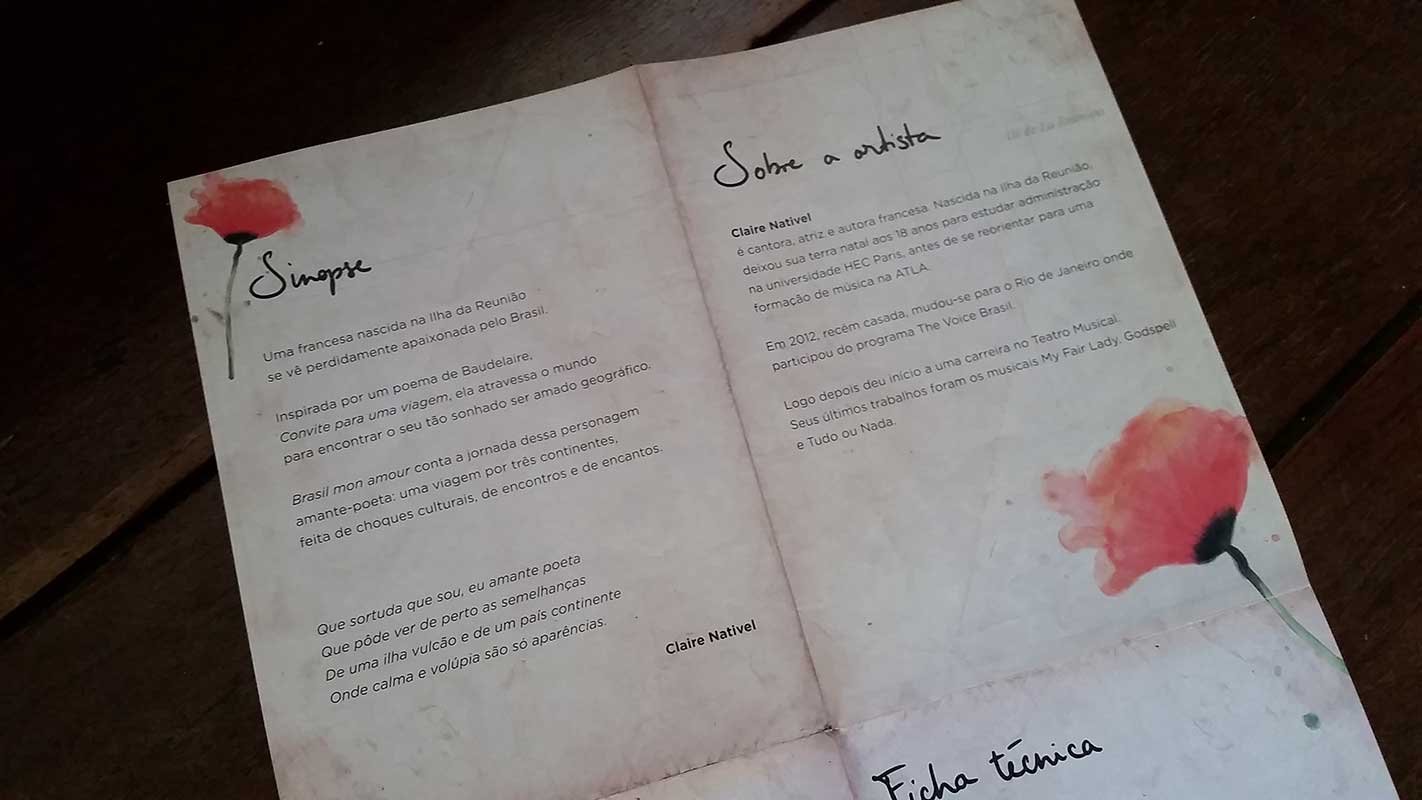 Sinopse
Uma francesa nascida na Ilha da Reunião
se vê perdidamente apaixonada pelo Brasil.
Inspirada por um poema de Baudelaire,
Convite para uma viagem, ela atravessa o mundo
para encontrar o seu tão sonhado ser amado geográfico.
Brasil mon amour conta a jornada dessa personagem
amante-poeta: uma viagem por três continentes,
feita de choques culturais, de encontros e de encantos.
Que sortuda que sou, eu amante poeta
Que pôde ver de perto as semelhanças
De uma ilha vulcão e de um país continente
Onde calma e volúpia são só aparências.
Claire Nativel
Sobre a artista
Claire Nativel
é cantora, atriz e autora francesa. Nascida na Ilha da Reunião,
deixou sua terra natal aos 18 anos para estudar administração
na universidade HEC Paris, antes de se reorientar para uma
formação de música na ATLA.
Em 2012, recém casada, mudou-se para o Rio de Janeiro onde
participou do programa The Voice Brasil.
Logo depois deu início a uma carreira no Teatro Musical.
Seus últimos trabalhos foram os musicais My Fair Lady, Godspell
e Tudo ou Nada.
Ficha técnica